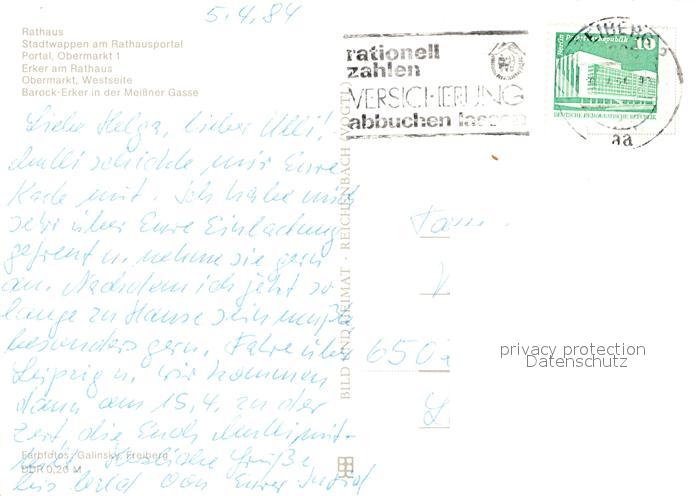 5.4.84
Rathaus
Stadtwappen am Rathausportal
Portal, Obermarkt 1
Erker am Rathaus
Obermarkt, Westseite
Barock-Erker in der Meißner Gasse
rationell
zahlen
VERSICHERUNG
abbuchen lassen
10
DEUTSCHE DEMOKRATISCHE REPUBLIK
aa
Liebe Helga, lieber Ulli!
Mutti schickte mir Eure
Karte mit. Ich habe mich
sehr über Eure Einladung
gefreut u. nehme sie gern
an. Nachdem ich jetzt so
lange zu Hause sein mußte
besonders gern. Fahre über
Leipzig u. wir kommen
dann am 15.4. zu der
Zeit, die Euch Mutti mit-
teilt. Herzliche Grüße
bis bald von Eurer Ingrid
Fam.
650
L
BILD UND HEIMAT · REICHENBACH (VOGTL)
privacy protection
Datenschutz
Farbfotos: Galinsky, Freiberg
DDR 0,20 M